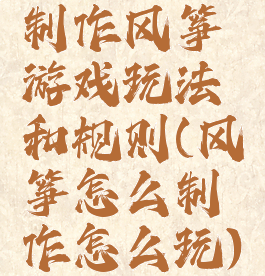 制作风筝
游戏玩法
和规则(风
筝怎么制
作怎么玩)